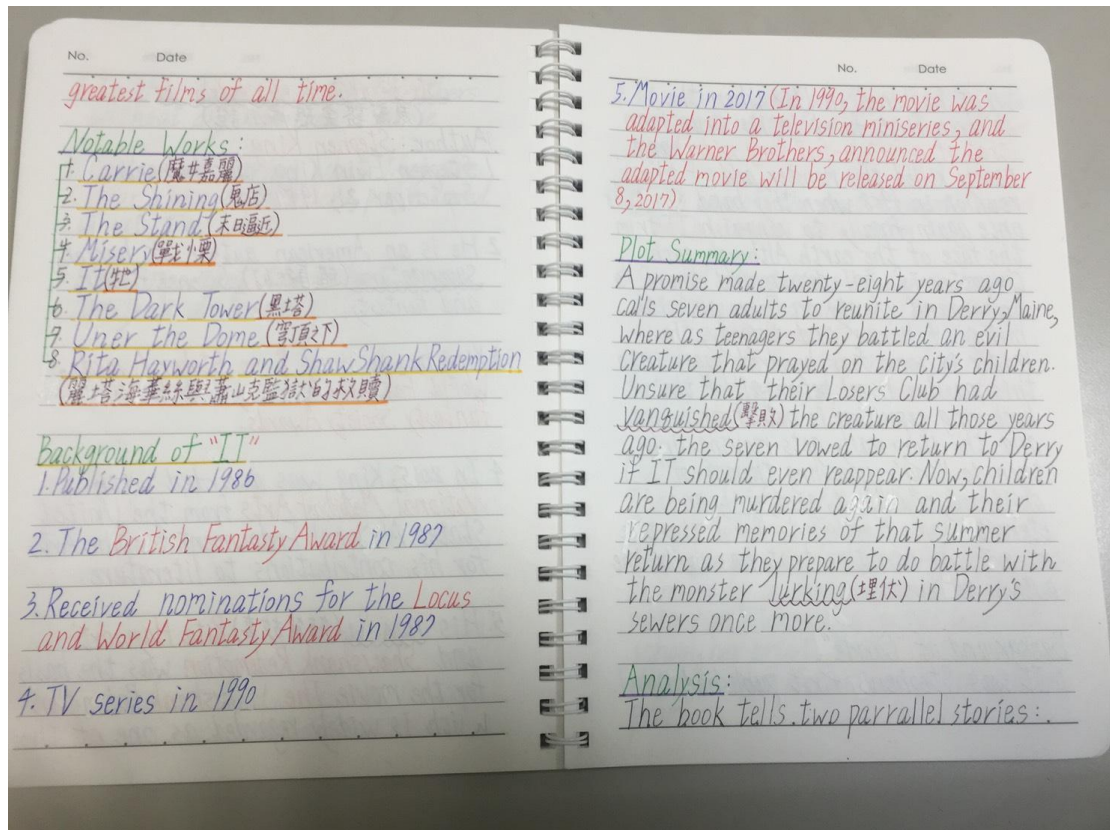 No. Date
greatest films of all time.
Notable Works:
1. Carrie(魔女嘉麗)
2. The Shining(鬼店)
3. The Stand(末日逼近)
4. Misery(戰慄)
5. It(牠)
6. The Dark Tower(黑塔)
7. Uner the Dome(穹頂之下)
8. Rita Hayworth and ShawShank Redemption
(麗塔海華絲與蕭山克監獄的救贖)
Background of "IT"
1. Published in 1986
2. The British Fantasty Award in 1987
3. Received nominations for the Locus
and World Fantasty Award in 1987
4. TV series in 1990
No. Date
5. Movie in 2017 (In 1990, the movie was
adapted into a television miniseries, and
the Warner Brothers, announced the
adapted movie will be released on September
8, 2017)
Plot Summary:
A promise made twenty-eight years ago
calls seven adults to reunite in Derry, Maine,
where as teenagers they battled an evil
creature that prayed on the city's children.
Unsure that their Losers Club had
vanquished(擊敗) the creature all those years
ago. the seven vowed to return to Derry
if IT should even reappear. Now, children
are being murdered again and their
repressed memories of that summer
return as they prepare to do battle with
the monster lurking(埋伏) in Derry's
sewers once more.
Analysis:
The book tells. two parrallel stories:.